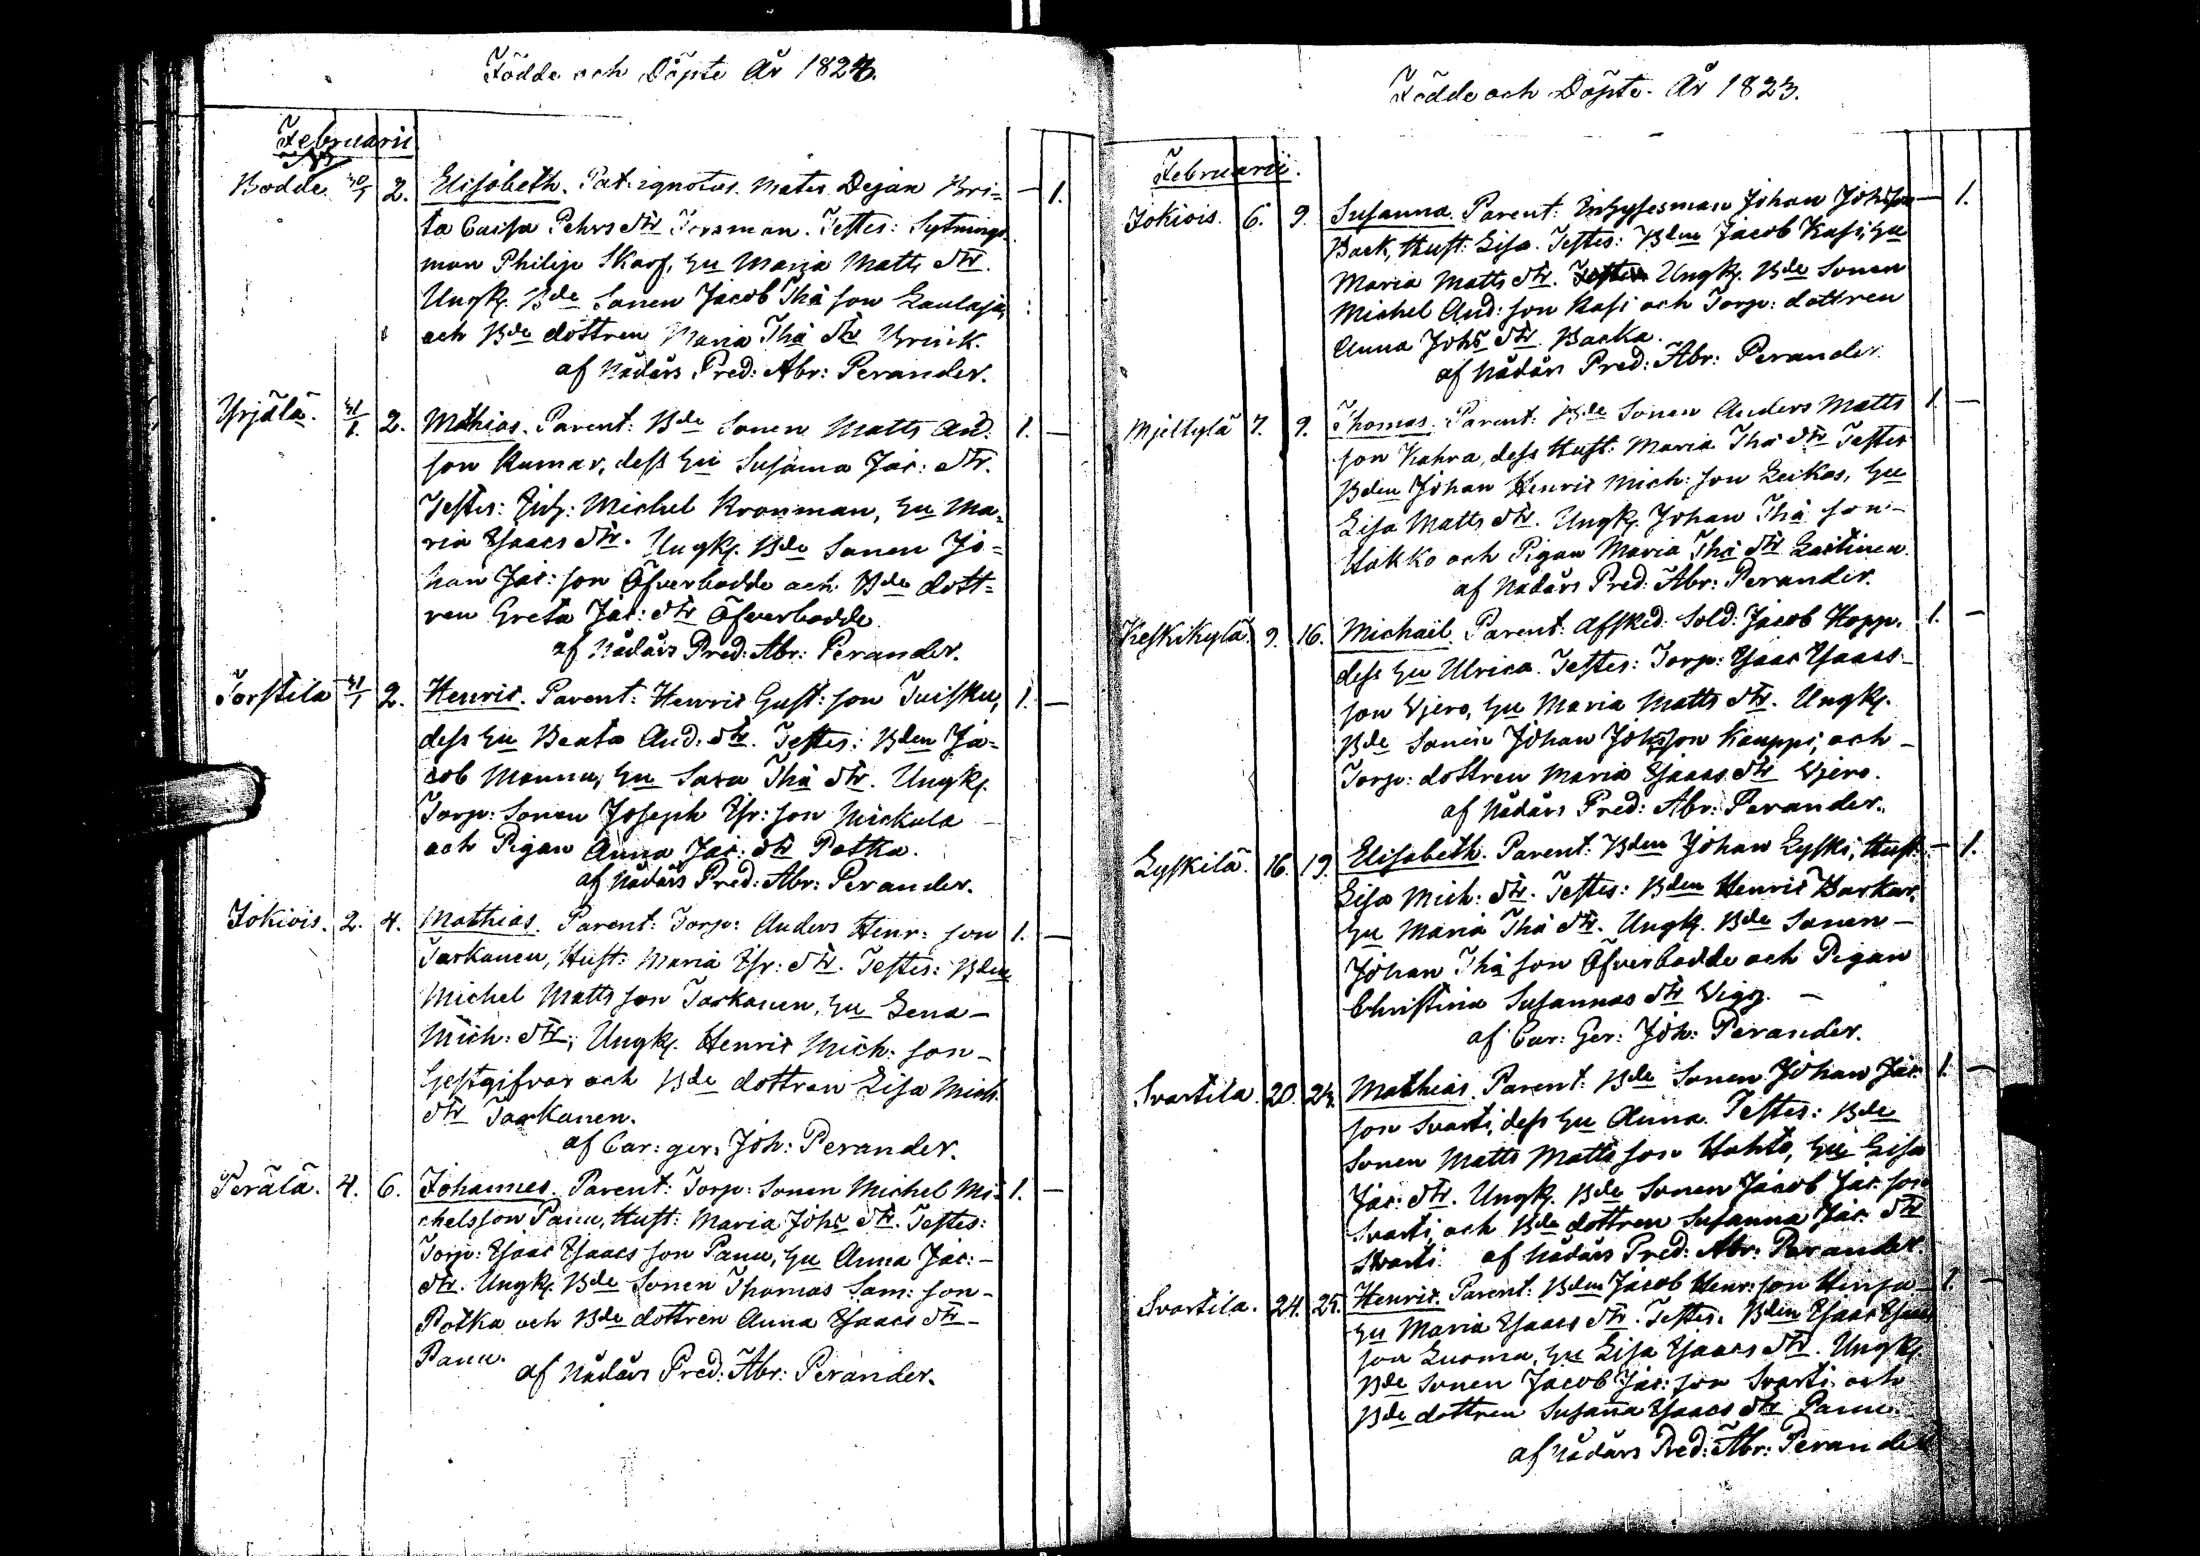 Födde och Döpte År 1823.
Februarii
Bodde. 30/1 2. Elisabeth. Pat. ignotus. Mater Dejan Bri= — 1.
ta Caisa Pehrs dtr Forsman. Testes: Sytnings
man Philip Skarf, Hu Maria Matts dtr.
Ungk. Bde Sonen Jacob Thå son Laulaja,
och Bde dottren Maria Thå dtr Brink.
af Nådårs Pred: Abr: Perander.
Yrjälä. 31/1. 2. Mathias. Parent: Bde Sonen Matts And: 1. —
son Kumar, dess Hu Susanna Jac: dtr.
Testes: Inh: Michel Kronman, Hu Ma=
ria Isaacs dtr. Ungk. Bde Sonen Jo=
han Jac: son Öfverbodde och Bde dott=
ren Greta Jac: dtr Öfverbodde
af Nådårs Pred: Abr: Perander.
Torstila 31/1 2. Henric. Parent: Henric Gust: son Tuisku, 1. —
dess Hu Beata And: dtr. Testes: Bden Ja=
cob Mannu, Hu Sara Thå dtr. Ungk.
Torp: Sonen Joseph Isr: son Mickula
och Pigan Anna Jac: dtr Potka.
af Nådårs Pred: Abr: Perander.
Jokivis. 2. 4. Mathias. Parent: Torp: Anders Henr: son 1. —
Tarkanen, Hust: Maria Isr: dtr. Testes: Bden
Michel Matts son Tarkanen, Hu Lena —
Mich: dtr; Ungk. Henric Mich: son —
Gestgifvar och Bde dottren Lisa Mich:
dtr Tarkanen.
af Cur: ger: Joh: Perander.
Perälä. 4. 6. Johannes. Parent: Torp: Sonen Michel Mi= 1. —
chelsson Panu, Hust: Maria Johs dtr. Testes:
Torp: Isaac Isaacs son Panu, Hu Anna Jac: —
dtr. Ungk. Bde Sonen Thomas Sam: son —
Potka och Bde dottren Anna Isaacs dtr —
Panu.
af Nådårs Pred: Abr: Perander.
Födde och Döpte År 1823.
Februarii.
Jokivis. 6. 9. Susanna. Parent: Inhysesman Johan Johsson — 1.
Back, Hust: Lisa. Testes: Bden Jacob Kasi, Hu
Maria Matts dtr. Ungk. Bde Sonen
Michel And: son Kasi och Torp: dottren
Anna Johs dtr. Backa.
af Nådårs Pred: Abr: Perander.
Mjelkylä 7. 9. Thomas. Parent: Bde Sonen Anders Matts 1. —
son Kahra, dess Hust: Maria Thå dtr Testes
Bden Johan Henric Mich: son Leikas, Hu
Lisa Matts dtr. Ungk. Johan Thå son —
Hakko och Pigan Maria Thå dtr Laitinen.
af Nådårs Pred: Abr: Perander.
Keskikylä. 9. 16. Michaël. Parent: Afsked: Sold: Jacob Hopp, 1. —
dess Hu Ulrica. Testes: Torp: Isaac Isaacs —
son Wjero, Hu Maria Matts dtr. Ungk.
Bde Sonen Johan Johsson Kauppi, och —
Torp: dottren Maria Isaacs dtr Wjero.
af Nådårs Pred: Abr: Perander.
Lyskilä. 16. 19. Elisabeth. Parent: Bden Johan Lyski, Hust: — 1.
Lisa Mich: dtr. Testes: Bden Henric Barkar,
Hu Maria Thå dtr. Ungk. Bde Sonen —
Johan Thå son Öfverbodde och Pigan
Christina Susannas dtr Wigg. —
af Cur: Ger: Joh: Perander.
Svartila. 20. 24. Mathias. Parent: Bde Sonen Johan Jac: 1. —
son Svarti, dess Hu Anna. Testes: Bde
Sonen Matts Matts son Hahto, Hu Lisa
Jac: dtr. Ungk. Bde Sonen Jacob Jac: son
Svarti, och Bde dottren Susanna Jac: dtr
Svarti. af Nådårs Pred: Abr: Perander.
Svartila. 24. 25. Henric. Parent: Bden Jacob Henr: son Hinsa — 1. —
Hu Maria Isaacs dtr. Testes: Bden Isaac Isaacs
son Luoma, Hu Lisa Isaacs dtr. Ungk.
Bde Sonen Jacob Jac: son Svarti och
Bde dottren Susanna Isaacs dtr Panu.
af Nådårs Pred: Abr: Perander